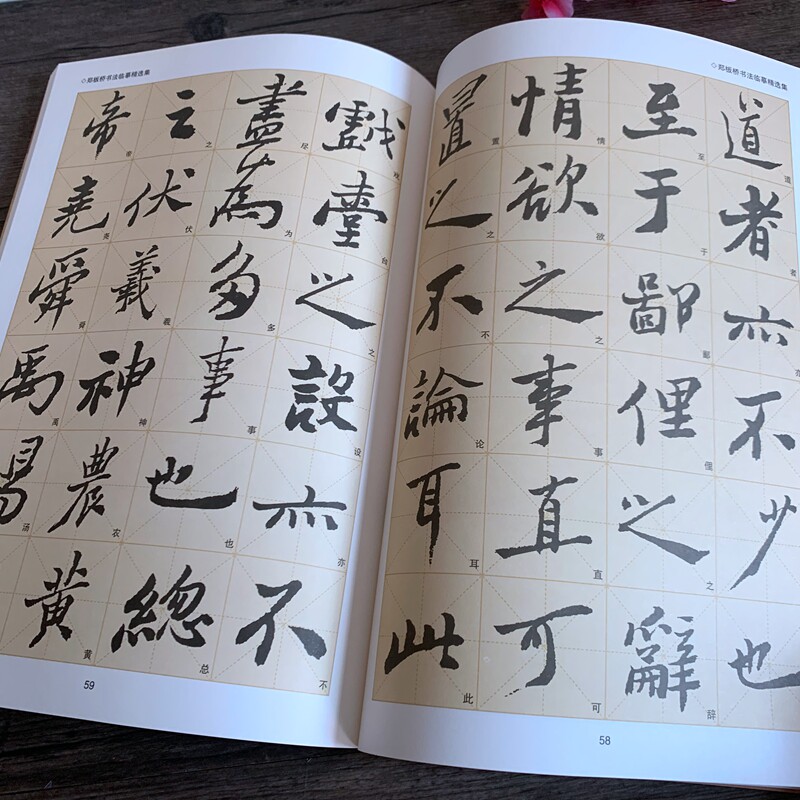 ◇郑板桥书法临摹精选集
道者亦不少也
道者亦
至于鄙俚之辭
至于鄙俚之辞
情欲之事直可
情欲之事直可
置之不論耳此
置之不论耳此
58
◇郑板桥书法临摹精选集
戲臺之設亦不
戏台之设亦不
盡為多事也總
尽为多事也总
之伏羲神農黃
之伏羲神农黄
帝堯舜禹湯
帝尧舜禹汤
59